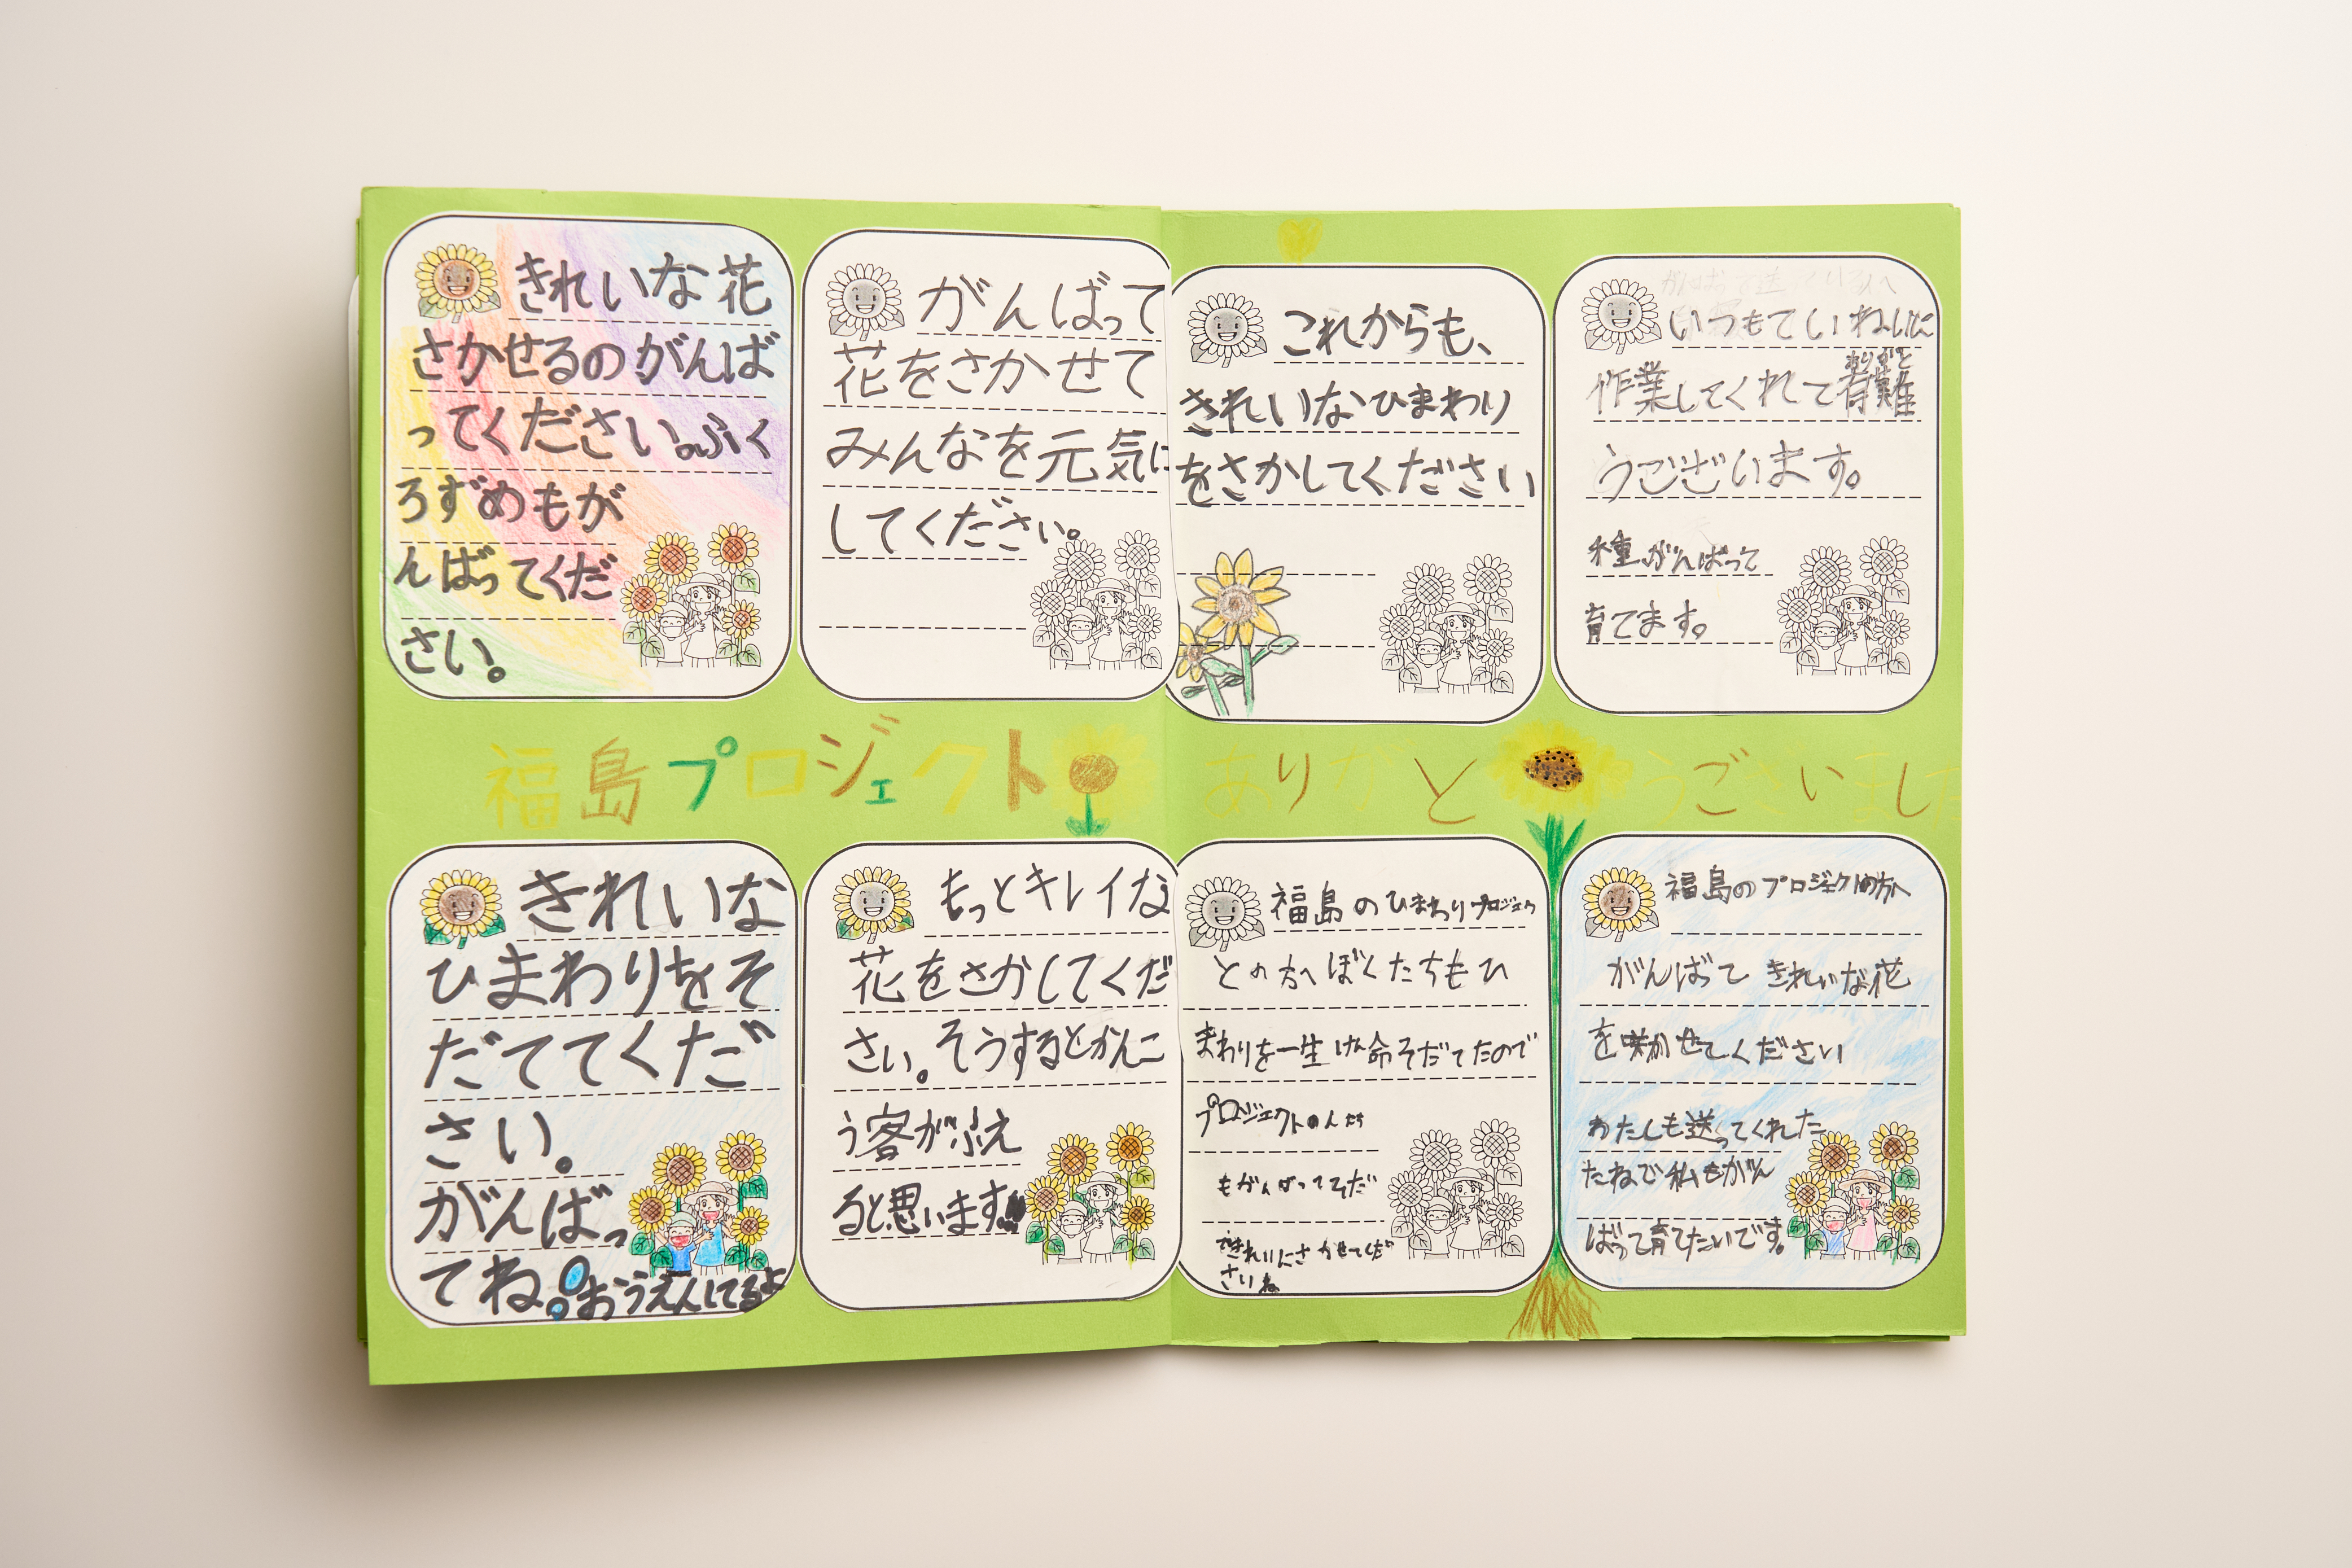 きれいな花
さかせるのがんば
ってください。ふく
ろずめもが
んばってくだ
さい。
がんばって
花をさかせて
みんなを元気に
してください。
これからも、
きれいなひまわり
をさかしてください
がんばって送っている人へ
いつもていねいに
作業してくれて有難
ありがと
うございます。
種、がんばって
育てます。
福島プロジェクト
ありがとうございました
きれいな
ひまわりをそ
だててくだ
さい。
がんばっ
てね。おうえんしてるよ
もっとキレイな
花をさかしてくだ
さい。そうするとかんこ
う客がふえ
ると思います!!!
福島のひまわりプロジェク
トの方へぼくたちもひ
まわりを一生けん命そだてたので
プロジェクトの人たち
もがんばってそだ
てきれいにさかせてくだ
さいね
福島のプロジェクトの方へ
がんばって きれいな花
を咲かせてください
わたしも送ってくれた
たねで私もがん
ばって育てたいです。